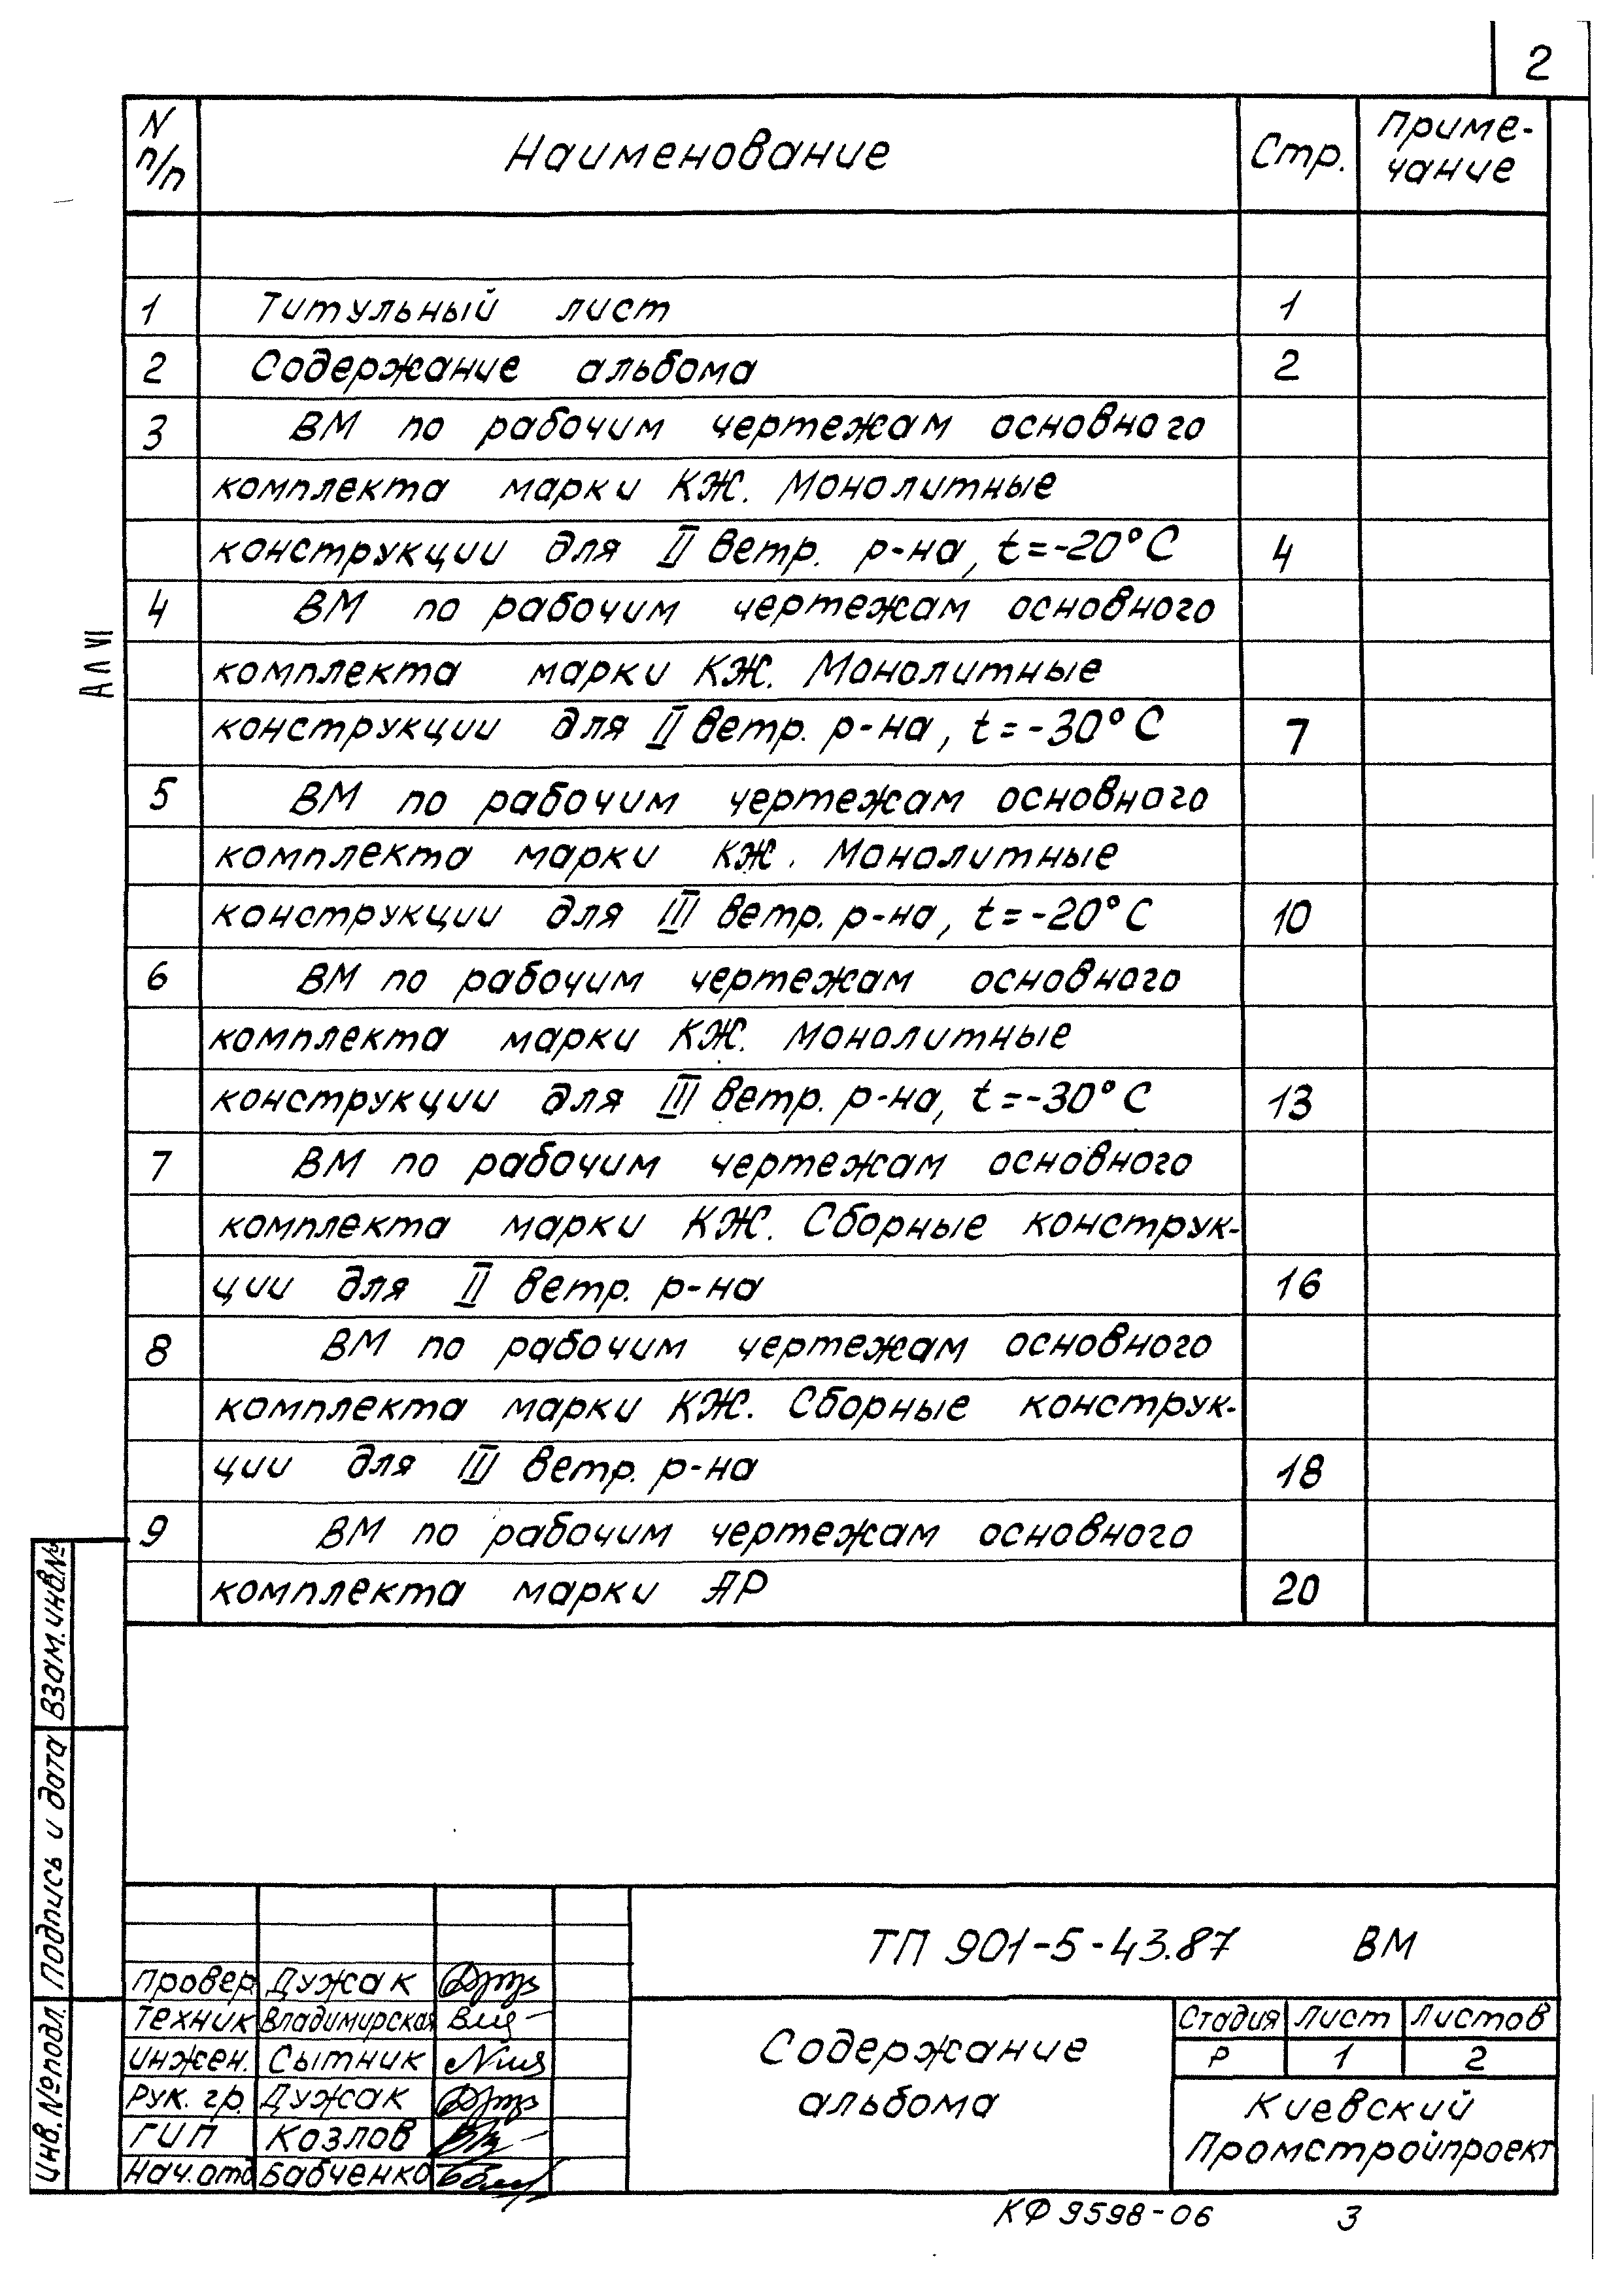 2
N п/п Наименование Стр. Приме-
чание
1 Титульный лист 1
2 Содержание альбома 2
3 ВМ по рабочим чертежам основного
комплекта марки КЖ. Монолитные
конструкции для II ветр. р-на, t=-20°С 4
4 ВМ по рабочим чертежам основного
комплекта марки КЖ. Монолитные
конструкции для II ветр. р-на, t=-30°С 7
5 ВМ по рабочим чертежам основного
комплекта марки КЖ. Монолитные
конструкции для III ветр. р-на, t=-20°С 10
6 ВМ по рабочим чертежам основного
комплекта марки КЖ. Монолитные
конструкции для III ветр. р-на, t=-30°С 13
7 ВМ по рабочим чертежам основного
комплекта марки КЖ. Сборные конструк-
ции для II ветр. р-на 16
8 ВМ по рабочим чертежам основного
комплекта марки КЖ. Сборные конструк-
ции для III ветр. р-на 18
9 ВМ по рабочим чертежам основного
комплекта марки АР 20
Ал VI
Взам.инв.№
Подпись и дата
Инв.№подл.
Провер Дужак
Техник Владимирская
Инжен. Сытник
Рук. гр. Дужак
ГИП Козлов
Нач.отд Бабченко
ТП 901-5-43.87 ВМ
Содержание
альбома
Стадия Лист Листов
Р 1 2
Киевский
Промстройпроект
КФ 9598-06 3